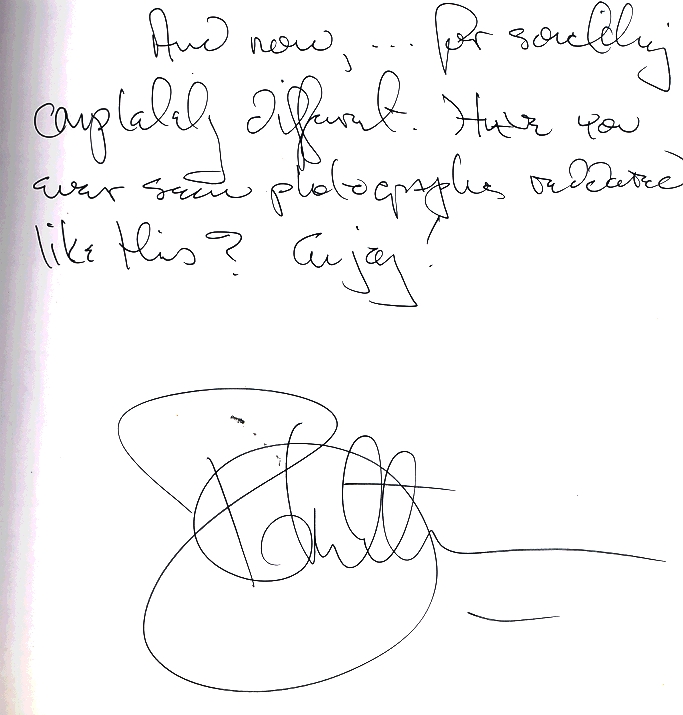 And now, ... for something
completely different. Have you
ever seen photographs
like this? Enjoy!